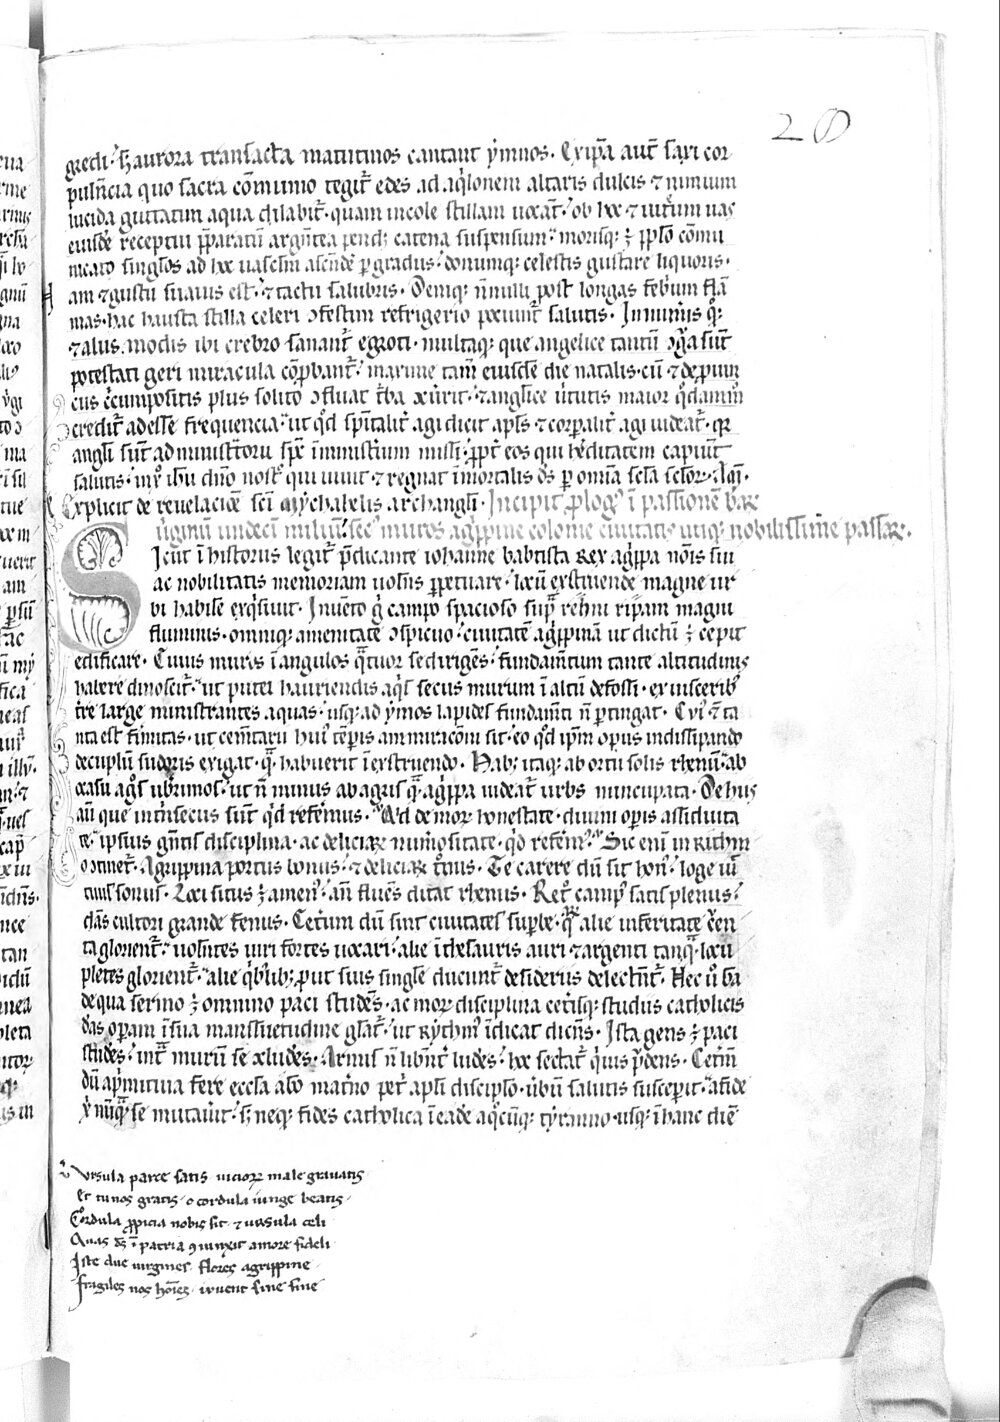 20
gredi. sꝫ aurora transacta matutinos cantant ẏmnos. Ex ip̄a aut̄ saxi cor
pulēcia quo sacra cōmunio tegit̄ edes ad aq̓lonem altaris dulcis ⁊ nimium
lucida guttatim aqua dilabit̄. quam incole stillam uocāt. ob hoc ⁊ uitͬum uas
eiusdē receptui p̄paratū argēntea pendꝫ catena suspensum. morisqꝫ ꝫ pp̄lo cōmu
nicato singl̓os ad hoc uascl̄m ascendē ꝑ gradus. donumqꝫ celestis gustare liquoris.
am ⁊ gustu suauis est. ⁊ tactu salubris. Deniqꝫ n̄nulli post longas febriūm flā
mas. hac hausta stilla celeri ↄfestim refrigerio pociunt̄ salutis. Innumis
⁊ alus modis ibi crebro sanant̄ egroti. multaqꝫ que angelice tantū ↄgͣa sūt
potestati geri miracula cōp̄bant̄. maxime tam̄ eiusdē die natalis. cū ⁊ de p̄uin
cus ccumpositis plus solito ↄfluat tͬba
credit̄ adesse frequencia. ut qd̓ sp̄italit̄ agi dicit apl̄s ⁊ corꝑalit̄ agi uideat̄. qꝛ
angl̓i sūt administͬtorii sp̄c in ministīum missi. p̄pt̄ eos qui hēditatem capiūt
salutis. in xp̄o ih̄u dn̄o nost̓. qui uiuit ⁊ regnat īmortalis ds̄ ꝑ omīa scl̄a scl̓oꝝ. am̄.
Explicit de reuelacioē sc̄i mẏchahelis archangl̓i. Incipit p̄logꝰ ī passionē
uirginū undecī miliū. sec̄ muros agͥppine colonie ciuitatis utiqꝫ nobilissime passaꝝ.
Sicut ī historiis legit̄ p̄dicante iohanne babtista Rex agͥppa nōis sui
ac nobilitatis memoriam uolens ꝑpetuare. locū exstruende magne ur
bi habile exqͥsiuit. Inuēto g̓ campo spacioso sup̄ rehni ripam magni
fluminis. omniqꝫ amenitate ↄspicuo. ciuitatē agͥppinā ut dictū ꝫ cepit
edificare. Cuius muros ī angulos qͣtuor se dirigēs. fundam̄tum tante altitudinis
habere dinoscit̄. ut putei hauriendis aqͥs secus murum ī altū defossi. ex uisceribꝰ
tͬre large ministrantes aquas. usqꝫ ad ẏmos lapides fundam̄ti n̄ ꝑtingat. Cuiꝰ ē ta
nta est firmitas. ut cem̄tarii huiꝰ tēꝑis ammiracōni sit. eo qd̓ ip̄m opus indissipando
decuplū sudoris exigat. qͣ habuerit ī exstruendo. Habꝫ itaqꝫ ab ortu solis rhenū. ab
occasu agͦs ubrimos. ut n̄ minus ab agris qͣ agͥppa uideat̄ urbs nuncupata. De hiis
aū que intͥnsecus sunt qd̓ referimus. Ad de moꝝ honestate. diuini oꝑis assiduita
te. ipsius gn̄tis disciplina. ac deliciaꝝ num̓ositate. qd̓ referim̓. Sic enī in Rithm
o ↄtinet̄. Agrippina portus bonus. ⁊ deliciaꝝ tͦnus. Te carere dū sit honꝰ. loge
tuus sonus. Loci situs ꝫ amenꝰ. an̄ fluēs ditat rhenus. Retͦ campꝰ satis plenus.
dans cultori grande fenus. Cetum dū sint ciuitates suꝑbe. qꝝ alie in feritate gen
ta glorient̄. uolentes uiri fortes uocari. alie ī thesauris auri ⁊ argenti tanqͣ locu
pletes glorient̄. alie qͥbuslibꝫ, put suis singule ducunt̄ desideriis delectent̄. Hec ū ba
de qua sermo ꝫ omnino paci studēs. ac moꝝ disciplina cet̓isqꝫ studiis catholicis
dās oꝑam ī sua mansuetudine glat̄. ut Rẏthmꝰ īdicat dicēs. Ista gens ꝫ paci
studēs. intͣ murum se xludēs. Armis n̄ libent̄ ludēs. hoc sectat̄ qͥuis pͬdens. Cetum
dū a pͥmitiua fere eccl̄a a sc̄o materno petͥ apl̄i discipl̓o. ūbū salutis suscepit. a fide
xͥ nūqͣ se mutauit. sꝫ neqꝫ fides catholica ī eadē aq̓cūqꝫ tẏranno. usqꝫ ī hanc diē
Vrsula parce satis. uicioꝝ male grauatis
Et tu nos gratis. o cordula iunge beatis.
Cordula ꝓpicia nobis sit. ⁊ ursula celi
Quas ds̄ ī patria ꝯiunxit amore fideli
Iste due uirgines. flores agrippine
Fragiles nos hoīes. iuuent sine fine